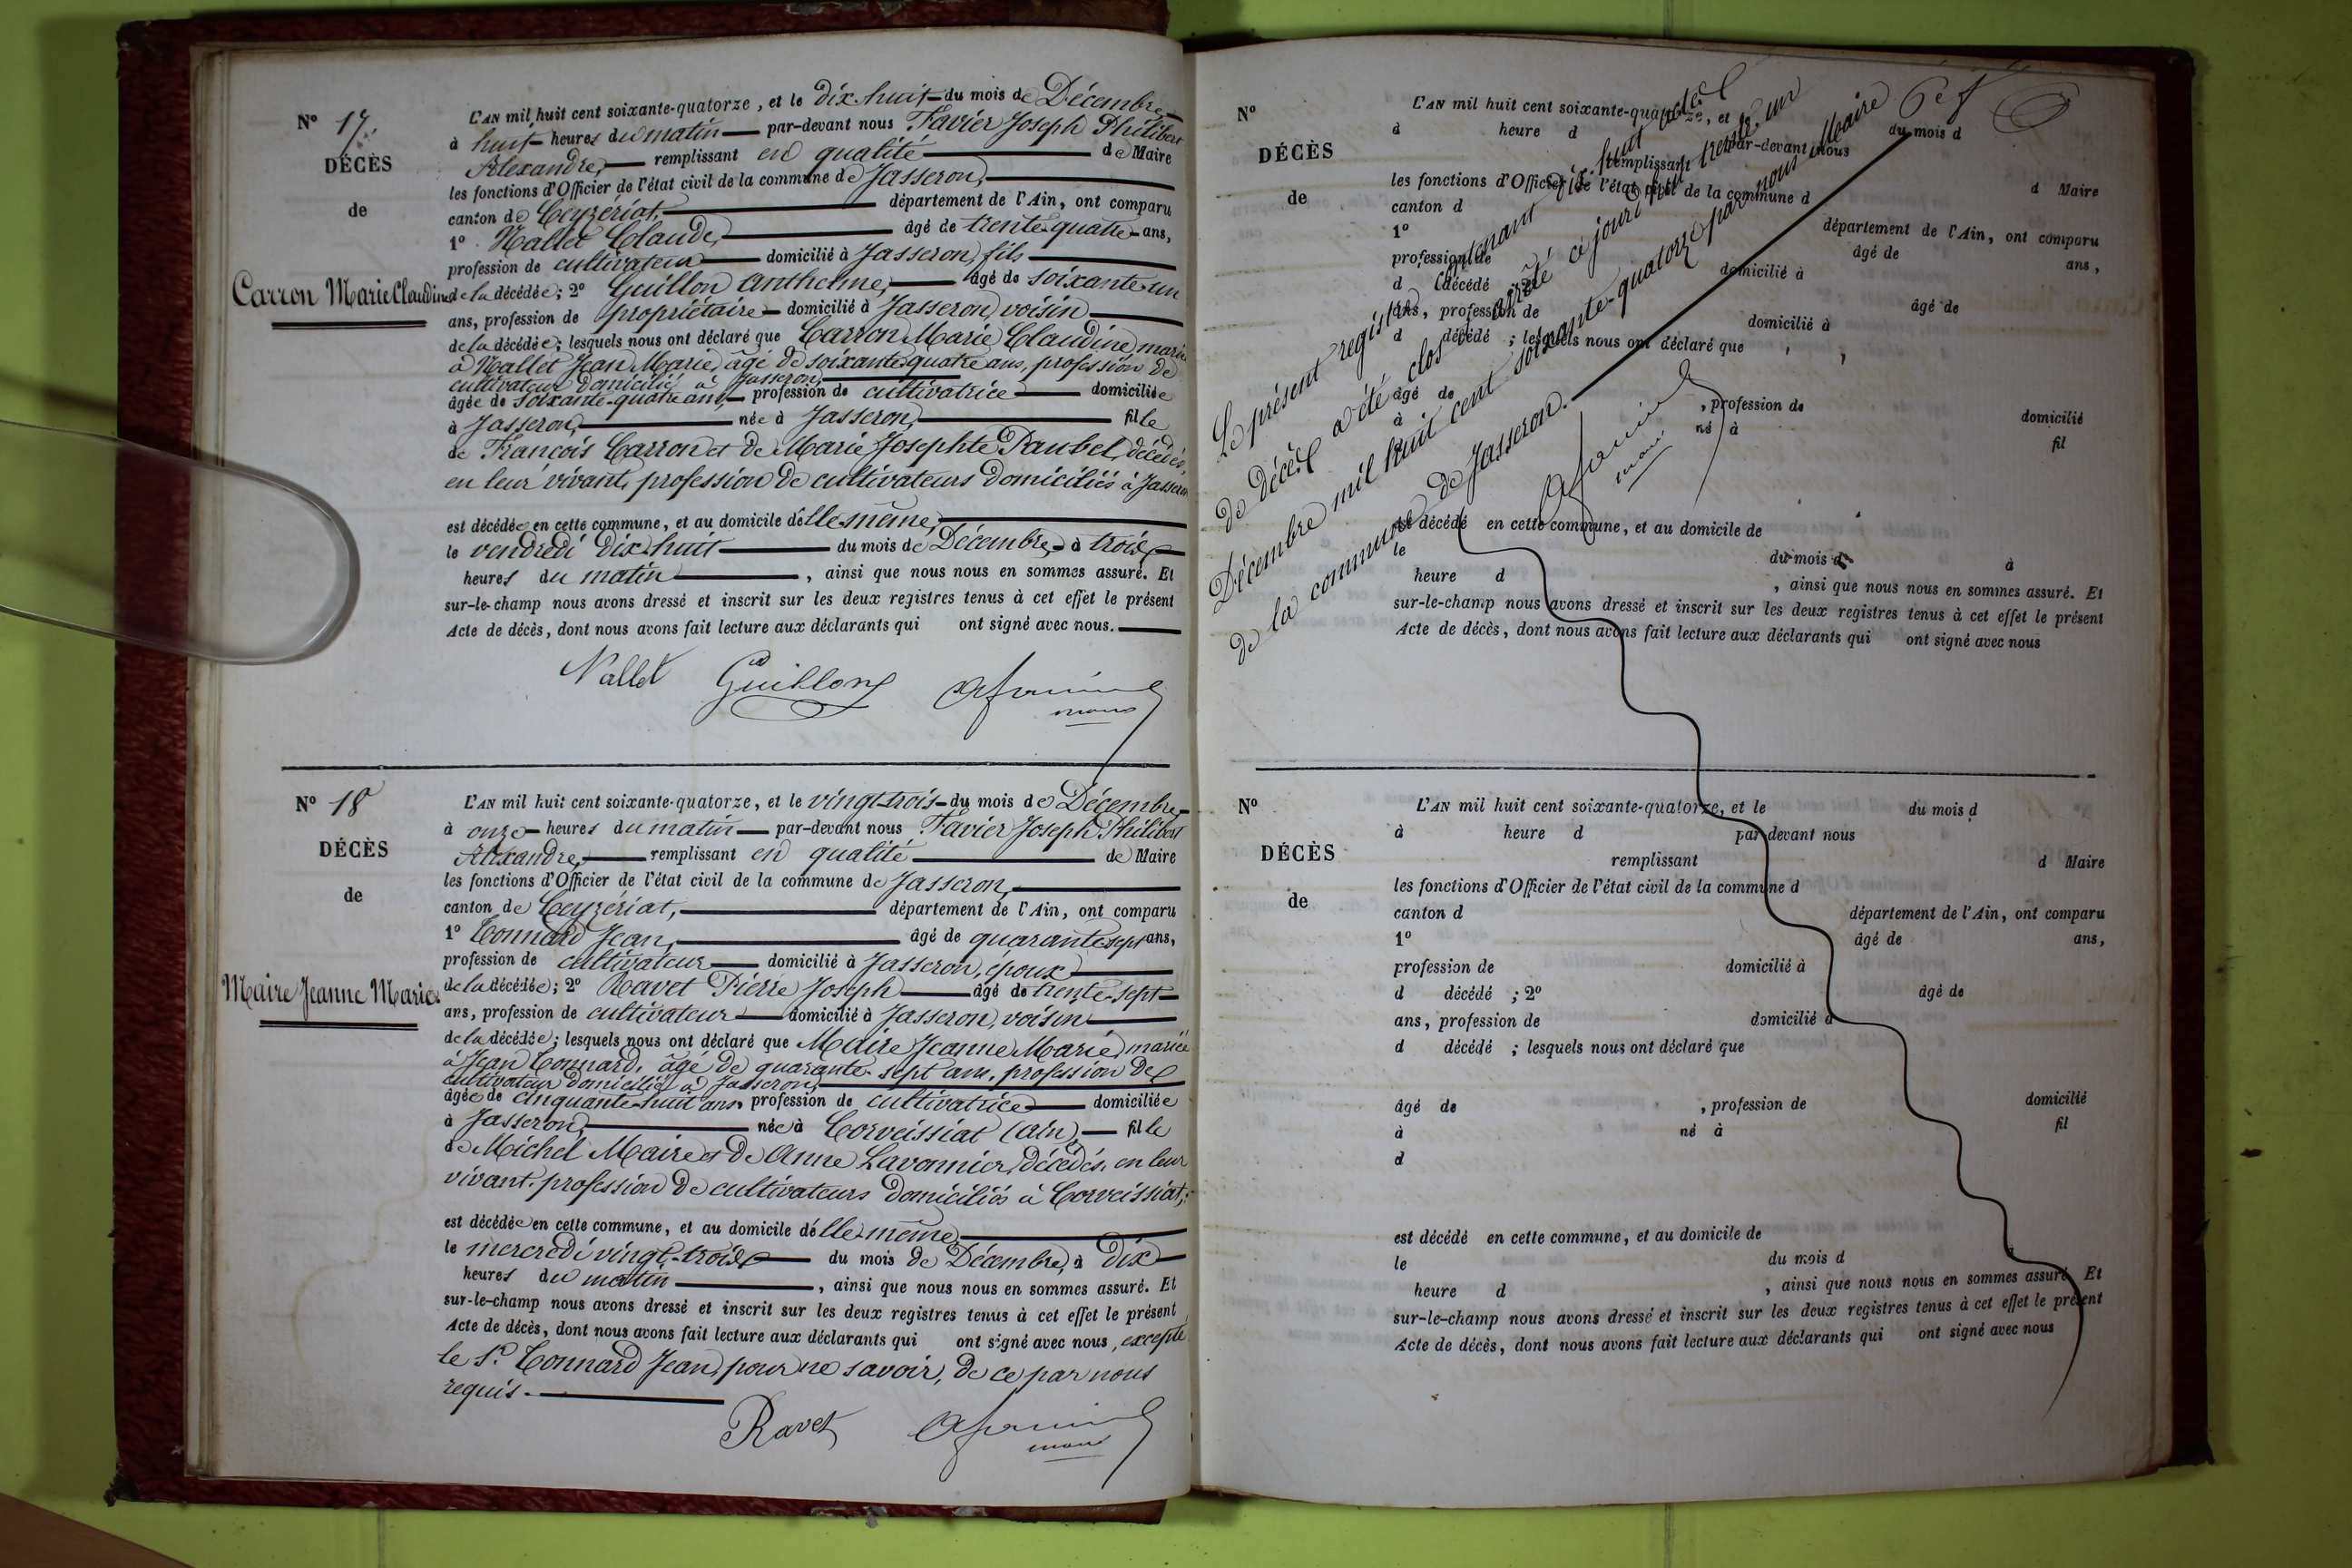 N° 17.
DÉCÈS
de
Carron Marie Claudine
L'AN mil huit cent soixante-quatorze, et le dix-huit du mois de Décembre
à huit heures du matin par-devant nous Favier Joseph Philibert
Alexandre, remplissant en qualité de Maire
les fonctions d'Officier de l'état civil de la commune de Jasseron,
canton de Ceyzériat, département de l'Ain, ont comparu
1° Nallet Claude, âgé de trente-quatre ans,
profession de cultivateur domicilié à Jasseron, fils
de la décédée; 2° Guillon Anthelme, âgé de soixante-un
ans, profession de propriétaire domicilié à Jasseron, voisin
de la décédée; lesquels nous ont déclaré que Carron Marie Claudine, mariée
à Nallet Jean Marie, âgé de soixante-quatre ans, profession de
cultivateur domicilié à Jasseron,
âgée de soixante-quatre ans, profession de cultivatrice domiciliée
à Jasseron, née à Jasseron, fille
de François Carron et de Marie Josephte Paubel, décédés,
en leur vivant, profession de cultivateurs domiciliés à Jasseron
est décédée en cette commune, et au domicile d'elle-même,
le vendredi dix-huit du mois de Décembre, à trois
heures du matin, ainsi que nous nous en sommes assuré. Et
sur-le-champ nous avons dressé et inscrit sur les deux registres tenus à cet effet le présent
Acte de décès, dont nous avons fait lecture aux déclarants qui ont signé avec nous.
Nallet Guillon
maire
N° 18
DÉCÈS
de
Maire Jeanne Marie
L'AN mil huit cent soixante-quatorze, et le vingt-trois du mois de Décembre
à onze heures du matin par-devant nous Favier Joseph Philibert
Alexandre, remplissant en qualité de Maire
les fonctions d'Officier de l'état civil de la commune de Jasseron,
canton de Ceyzériat, département de l'Ain, ont comparu
1° Connard Jean, âgé de quarante sept ans,
profession de cultivateur domicilié à Jasseron, époux
de la décédée; 2° Ravet Pierre Joseph âgé de trente-sept
ans, profession de cultivateur domicilié à Jasseron, voisin
de la décédée; lesquels nous ont déclaré que Maire Jeanne Marie, mariée
à Jean Connard, âgé de quarante-sept ans, profession de
cultivateur domicilié à Jasseron,
âgée de cinquante-huit ans, profession de cultivatrice domiciliée
à Jasseron, née à Corveissiat (ain), fille
de Michel Maire et de Anne Lavonnier, décédés, en leur
vivant, profession de cultivateurs domiciliés à Corveissiat,
est décédée en cette commune, et au domicile d'elle-même,
le mercredi vingt-trois du mois de Décembre, à dix
heures du matin, ainsi que nous nous en sommes assuré. Et
sur-le-champ nous avons dressé et inscrit sur les deux registres tenus à cet effet le présent
Acte de décès, dont nous avons fait lecture aux déclarants qui ont signé avec nous, excepté
le Sr. Connard Jean, pour ne savoir, de ce par nous
requis.
Ravet
maire
N°
DÉCÈS
de
L'AN mil huit cent soixante-quatorze, et le du mois d
à heure d par-devant nous
remplissant d Maire
les fonctions d'Officier de l'état civil de la commune d
canton d département de l'Ain, ont comparu
1° âgé de ans,
profession de domicilié à
d décédé ; 2° âgé de
ans, profession de domicilié à
d décédé ; lesquels nous ont déclaré que
âgé de , profession de domicilié
à né à fil
est décédé en cette commune, et au domicile de
le du mois d à
heure d , ainsi que nous nous en sommes assuré. Et
sur-le-champ nous avons dressé et inscrit sur les deux registres tenus à cet effet le présent
Acte de décès, dont nous avons fait lecture aux déclarants qui ont signé avec nous
Le présent registre contenant dix-huit actes
de décès a été clos et arrêté ce jourd'hui trente-un
Décembre mil huit cent soixante-quatorze par nous Maire
de la commune de Jasseron.
maire
N°
DÉCÈS
de
L'AN mil huit cent soixante-quatorze, et le du mois d
à heure d par-devant nous
remplissant d Maire
les fonctions d'Officier de l'état civil de la commune d
canton d département de l'Ain, ont comparu
1° âgé de ans,
profession de domicilié à
d décédé ; 2° âgé de
ans, profession de domicilié à
d décédé ; lesquels nous ont déclaré que
âgé de , profession de domicilié
à né à fil
d
est décédé en cette commune, et au domicile de
le du mois d
heure d , ainsi que nous nous en sommes assuré. Et
sur-le-champ nous avons dressé et inscrit sur les deux registres tenus à cet effet le présent
Acte de décès, dont nous avons fait lecture aux déclarants qui ont signé avec nous